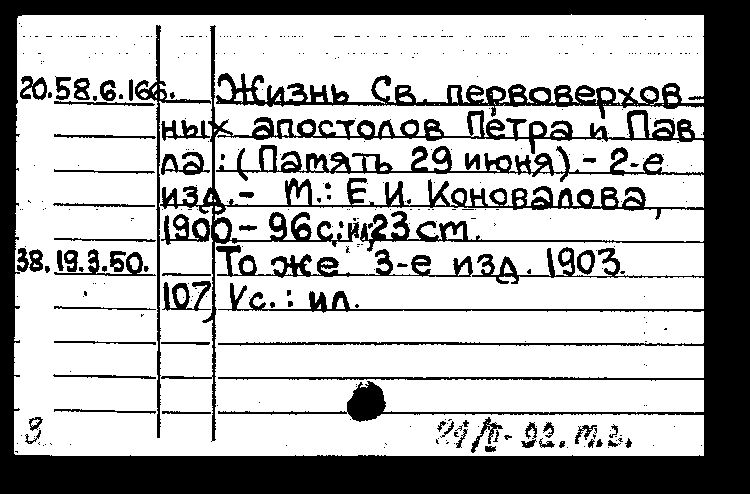 20.58.6.166. Жизнь Св. первоверхов-
ных апостолов Петра и Пав
ла : (Память 29 июня). - 2-е
изд. - М.: Е. И. Коновалова,
1900. - 96 с.: ил, 23 cm.
38.19.3.50. То же. 3-е изд. 1903.
107, Vс. : ил.